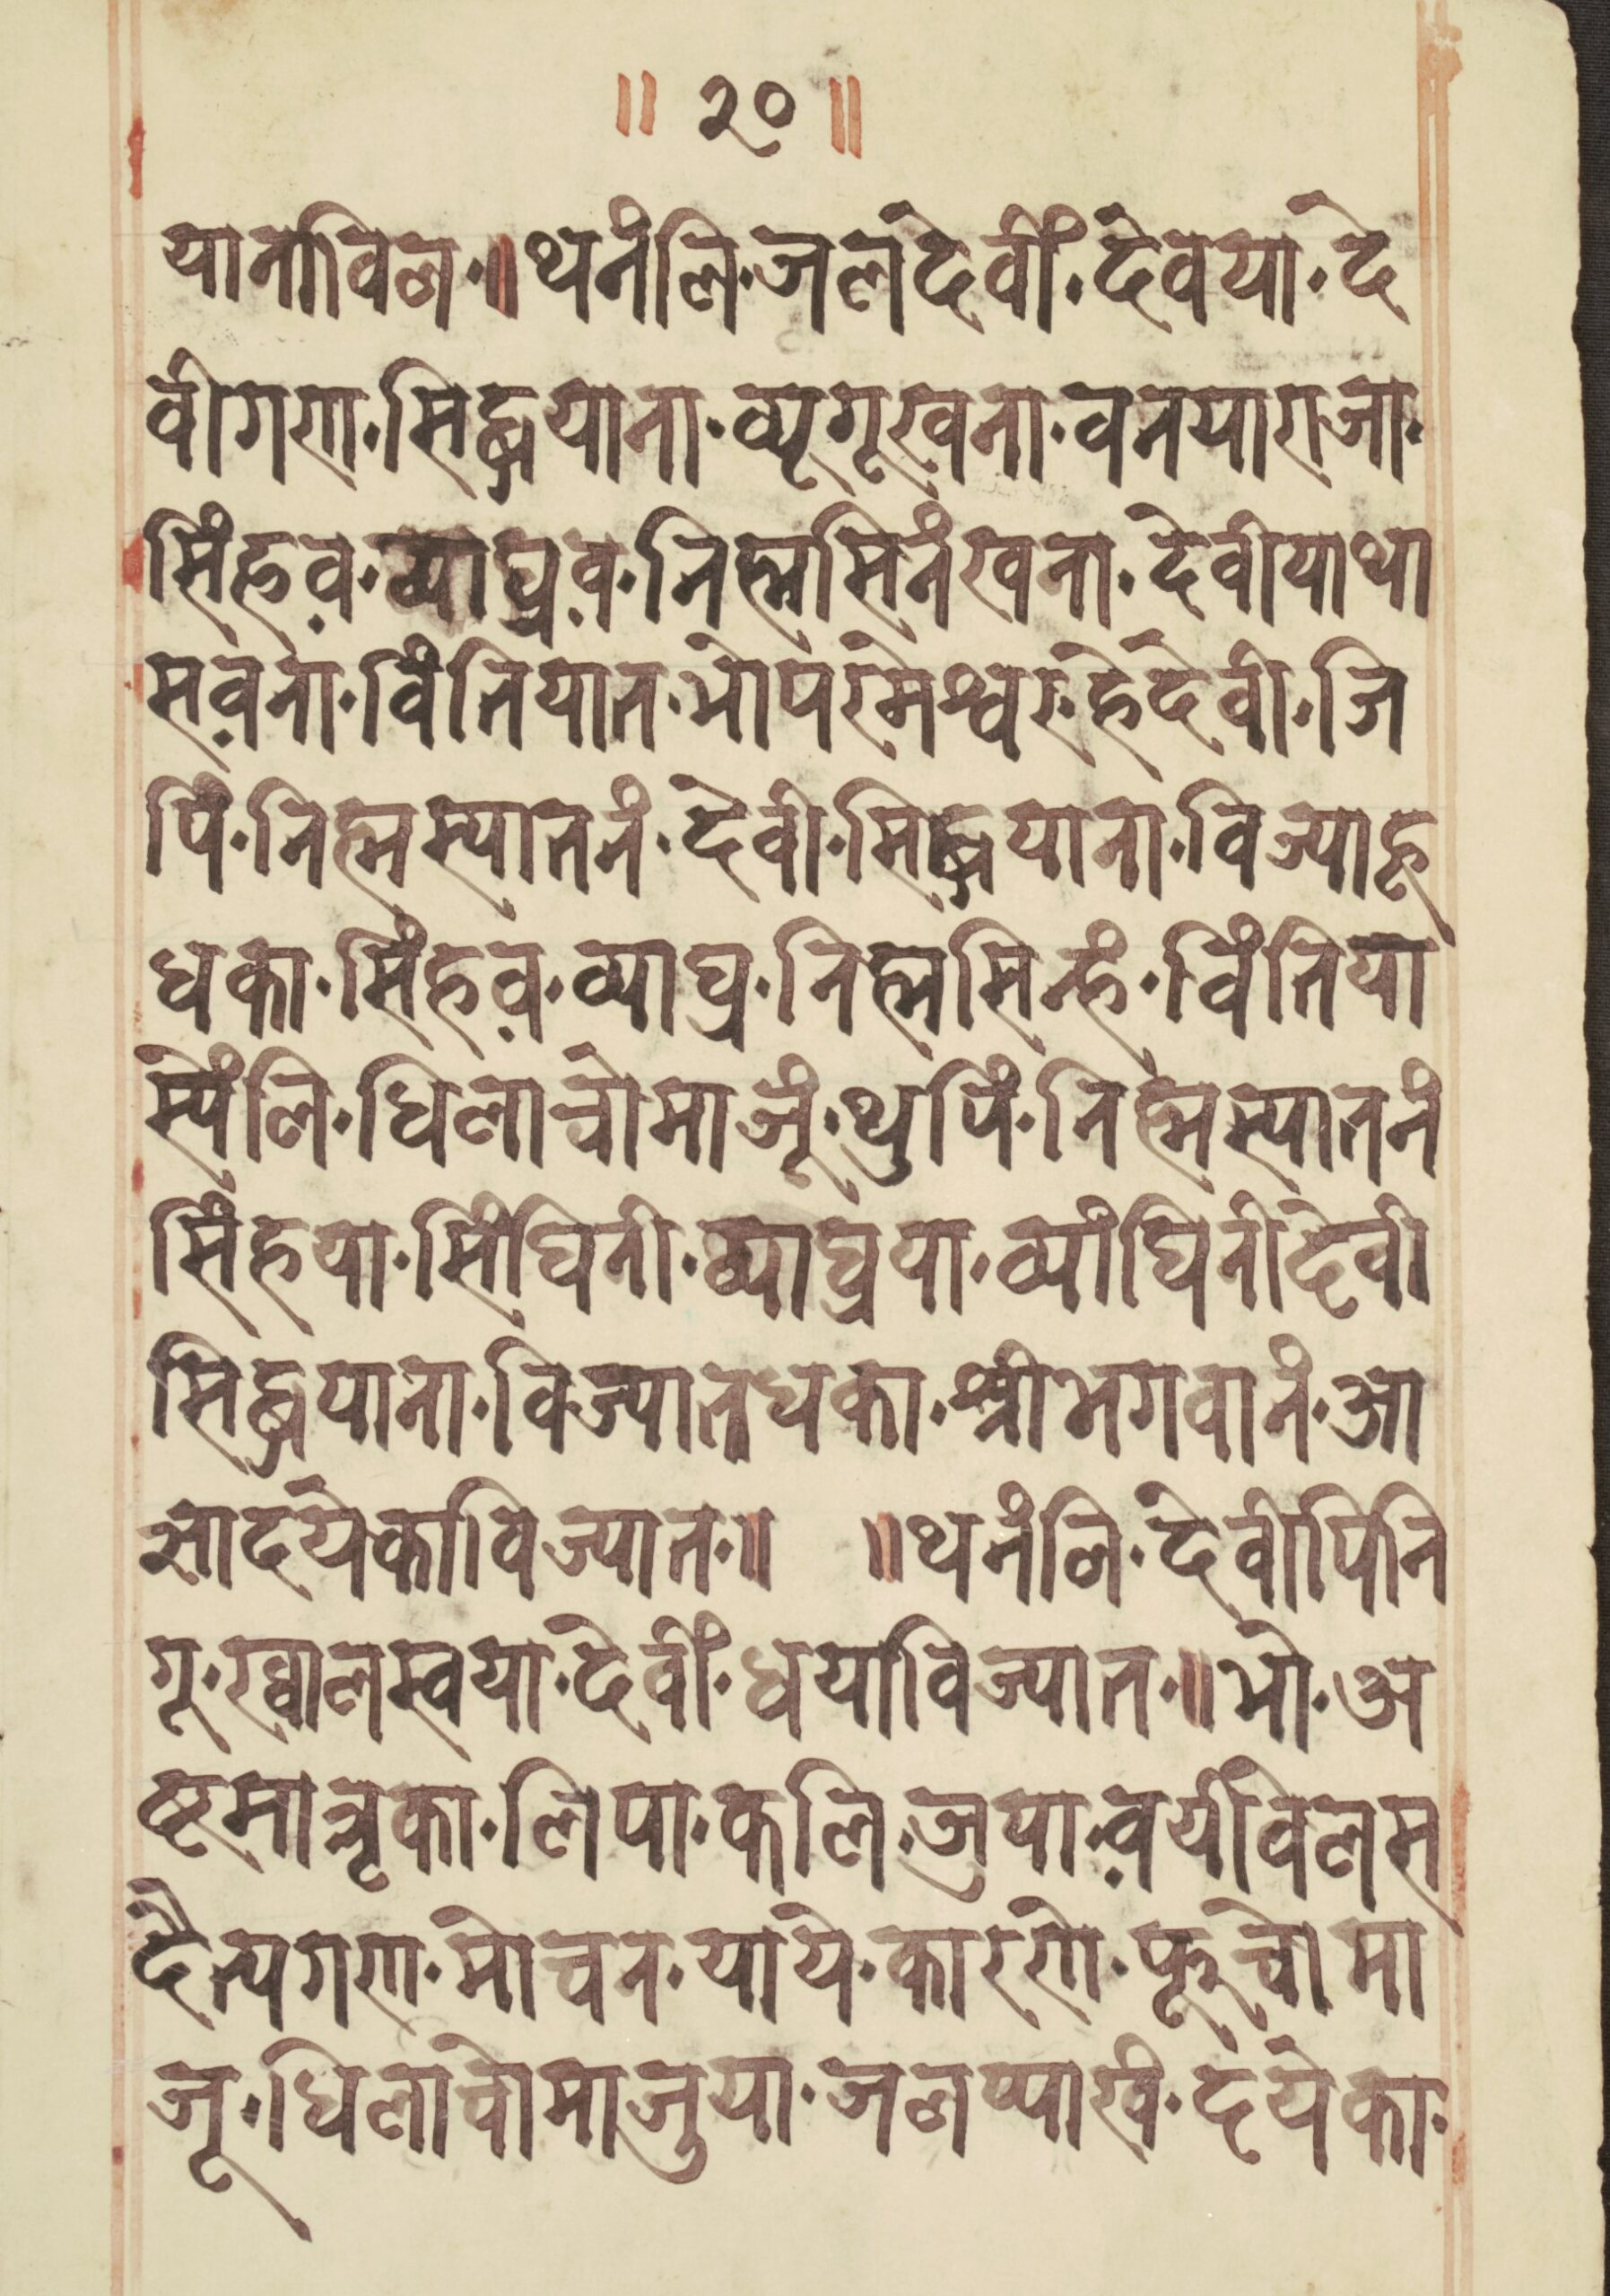 ॥ २० ॥
यानाविल.॥थनंलि.जलंदेवीं.देवया.दे
वीगण.सिद्धयाना.व्यूगूखना.वनयाराजा.
सिंहव़.व्याघ्रव़.निह्मसिनंखना.देवीयाथा
सव़ना.विंतियात.भोपरमेश्वर.हेदेवी.जि
पिं.निह्मस्यातनं.देवी.सिद्धयाना.विज्याहू
धका.सिंहव़.व्याघ्र.निह्मसिन्हं.विंतिया
स्येंलि.धिलाचोमाजूं.थुपिं.निह्मस्यातनं
सिंहया.सिंघिनी.व्याघ्रया.व्यांघिनीदेवी
सिद्धयाना.विज्यातधका.श्रीभगवानं.आ
ज्ञादयेकाविज्यात.॥ ॥थनंलि.देवीपिनि
गू.ख्वालस्वया.देवीं.धयाविज्यात.॥भो.अ
ष्टमातृका.लिपा.कलि.जुया.व़यीवेलस
दैत्यगण.मोचन.याये.कारणे.फूचोमा
जू.धिलाचोमाजुया.जलप्पाखं.दयेका.